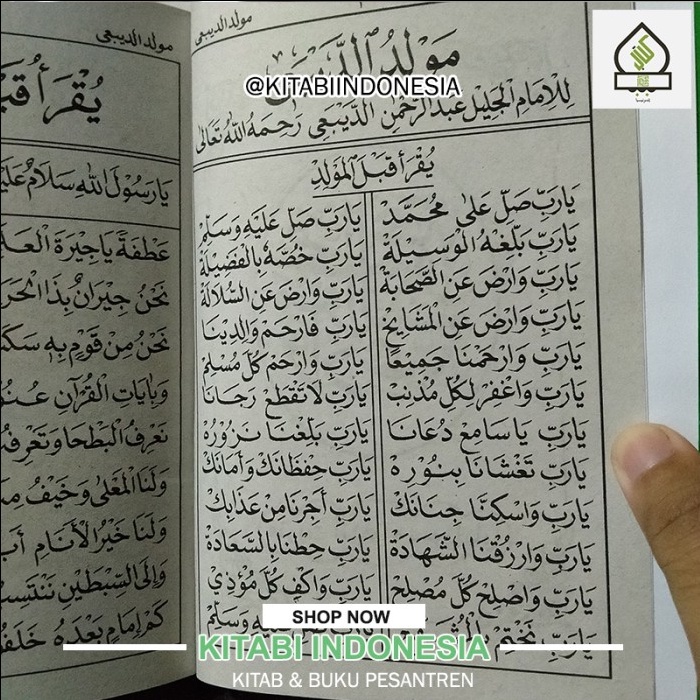 مولد الديبعي
مَوْلِدُ الدِّيبَعِي
@KITABIINDONESIA
لِلْإِمَامِ الْجَلِيْلِ عَبْدِ الرَّحْمٰنِ الدِّيْبَعِي رَحِمَهُ اللهُ تَعَالَى
يُقْرَأُ قَبْلَ الْمَوْلِدِ
يَارَبِّ صَلِّ عَلَى مُحَمَّدْ يَارَبِّ صَلِّ عَلَيْهِ وَسَلِّمْ
يَارَبِّ بَلِّغْهُ الْوَسِيْلَةْ يَارَبِّ خُصَّهُ بِالْفَضِيْلَةْ
يَارَبِّ وَارْضَ عَنِ الصَّحَابَةْ يَارَبِّ وَارْضَ عَنِ السُّلَالَةْ
يَارَبِّ وَارْضَ عَنِ الْمَشَايِخْ يَارَبِّ فَارْحَمْ وَالِدِيْنَا
يَارَبِّ وَارْحَمْنَا جَمِيْعًا يَارَبِّ وَارْحَمْ كُلَّ مُسْلِمْ
يَارَبِّ وَاغْفِرْ لِكُلِّ مُذْنِبْ يَارَبِّ لَاتَقْطَعْ رَجَانَا
يَارَبِّ يَاسَامِعْ دُعَانَا يَارَبِّ بَلِّغْنَا نَزُوْرُهْ
يَارَبِّ تَغْشَانَا بِنُوْرِهْ يَارَبِّ حِفْظَانَكْ وَأَمَانَكْ
يَارَبِّ وَاسْكِنَّا جِنَانَكْ يَارَبِّ أَجِرْنَا مِنْ عَذَابِكْ
يَارَبِّ وَارْزُقْنَا الشَّهَادَةْ يَارَبِّ حِطْنَا بِالسَّعَادَةْ
يَارَبِّ وَاصْلِحْ كُلَّ مُصْلِحْ يَارَبِّ وَاكْفِ كُلَّ مُؤْذِيْ
يَارَبِّ نَخْتِمْ عَلَيْهِ وَسَلِّمْ
مولد الديبعي
يُقْرَأُ
يَارَسُوْلَ اللهِ سَلَامٌ
عَطْفَةً يَاجِيْرَةَ
نَحْنُ جِيْرَانٌ بِذَا
نَحْنُ مِنْ قَوْمٍ بِهِ
وَبِآيَاتِ الْقُرْآنِ
نَعْرِفُ الْبَطْحَا
وَلَنَا الْمَعْلَى وَخَيْفُ
وَلَنَا خَيْرُ الْأَنَامِ
وَإِلَى السِّبْطَيْنِ
كَمْ إِمَامٍ بَعْدَهُ
SHOP NOW
KITABI INDONESIA
KITAB & BUKU PESANTREN